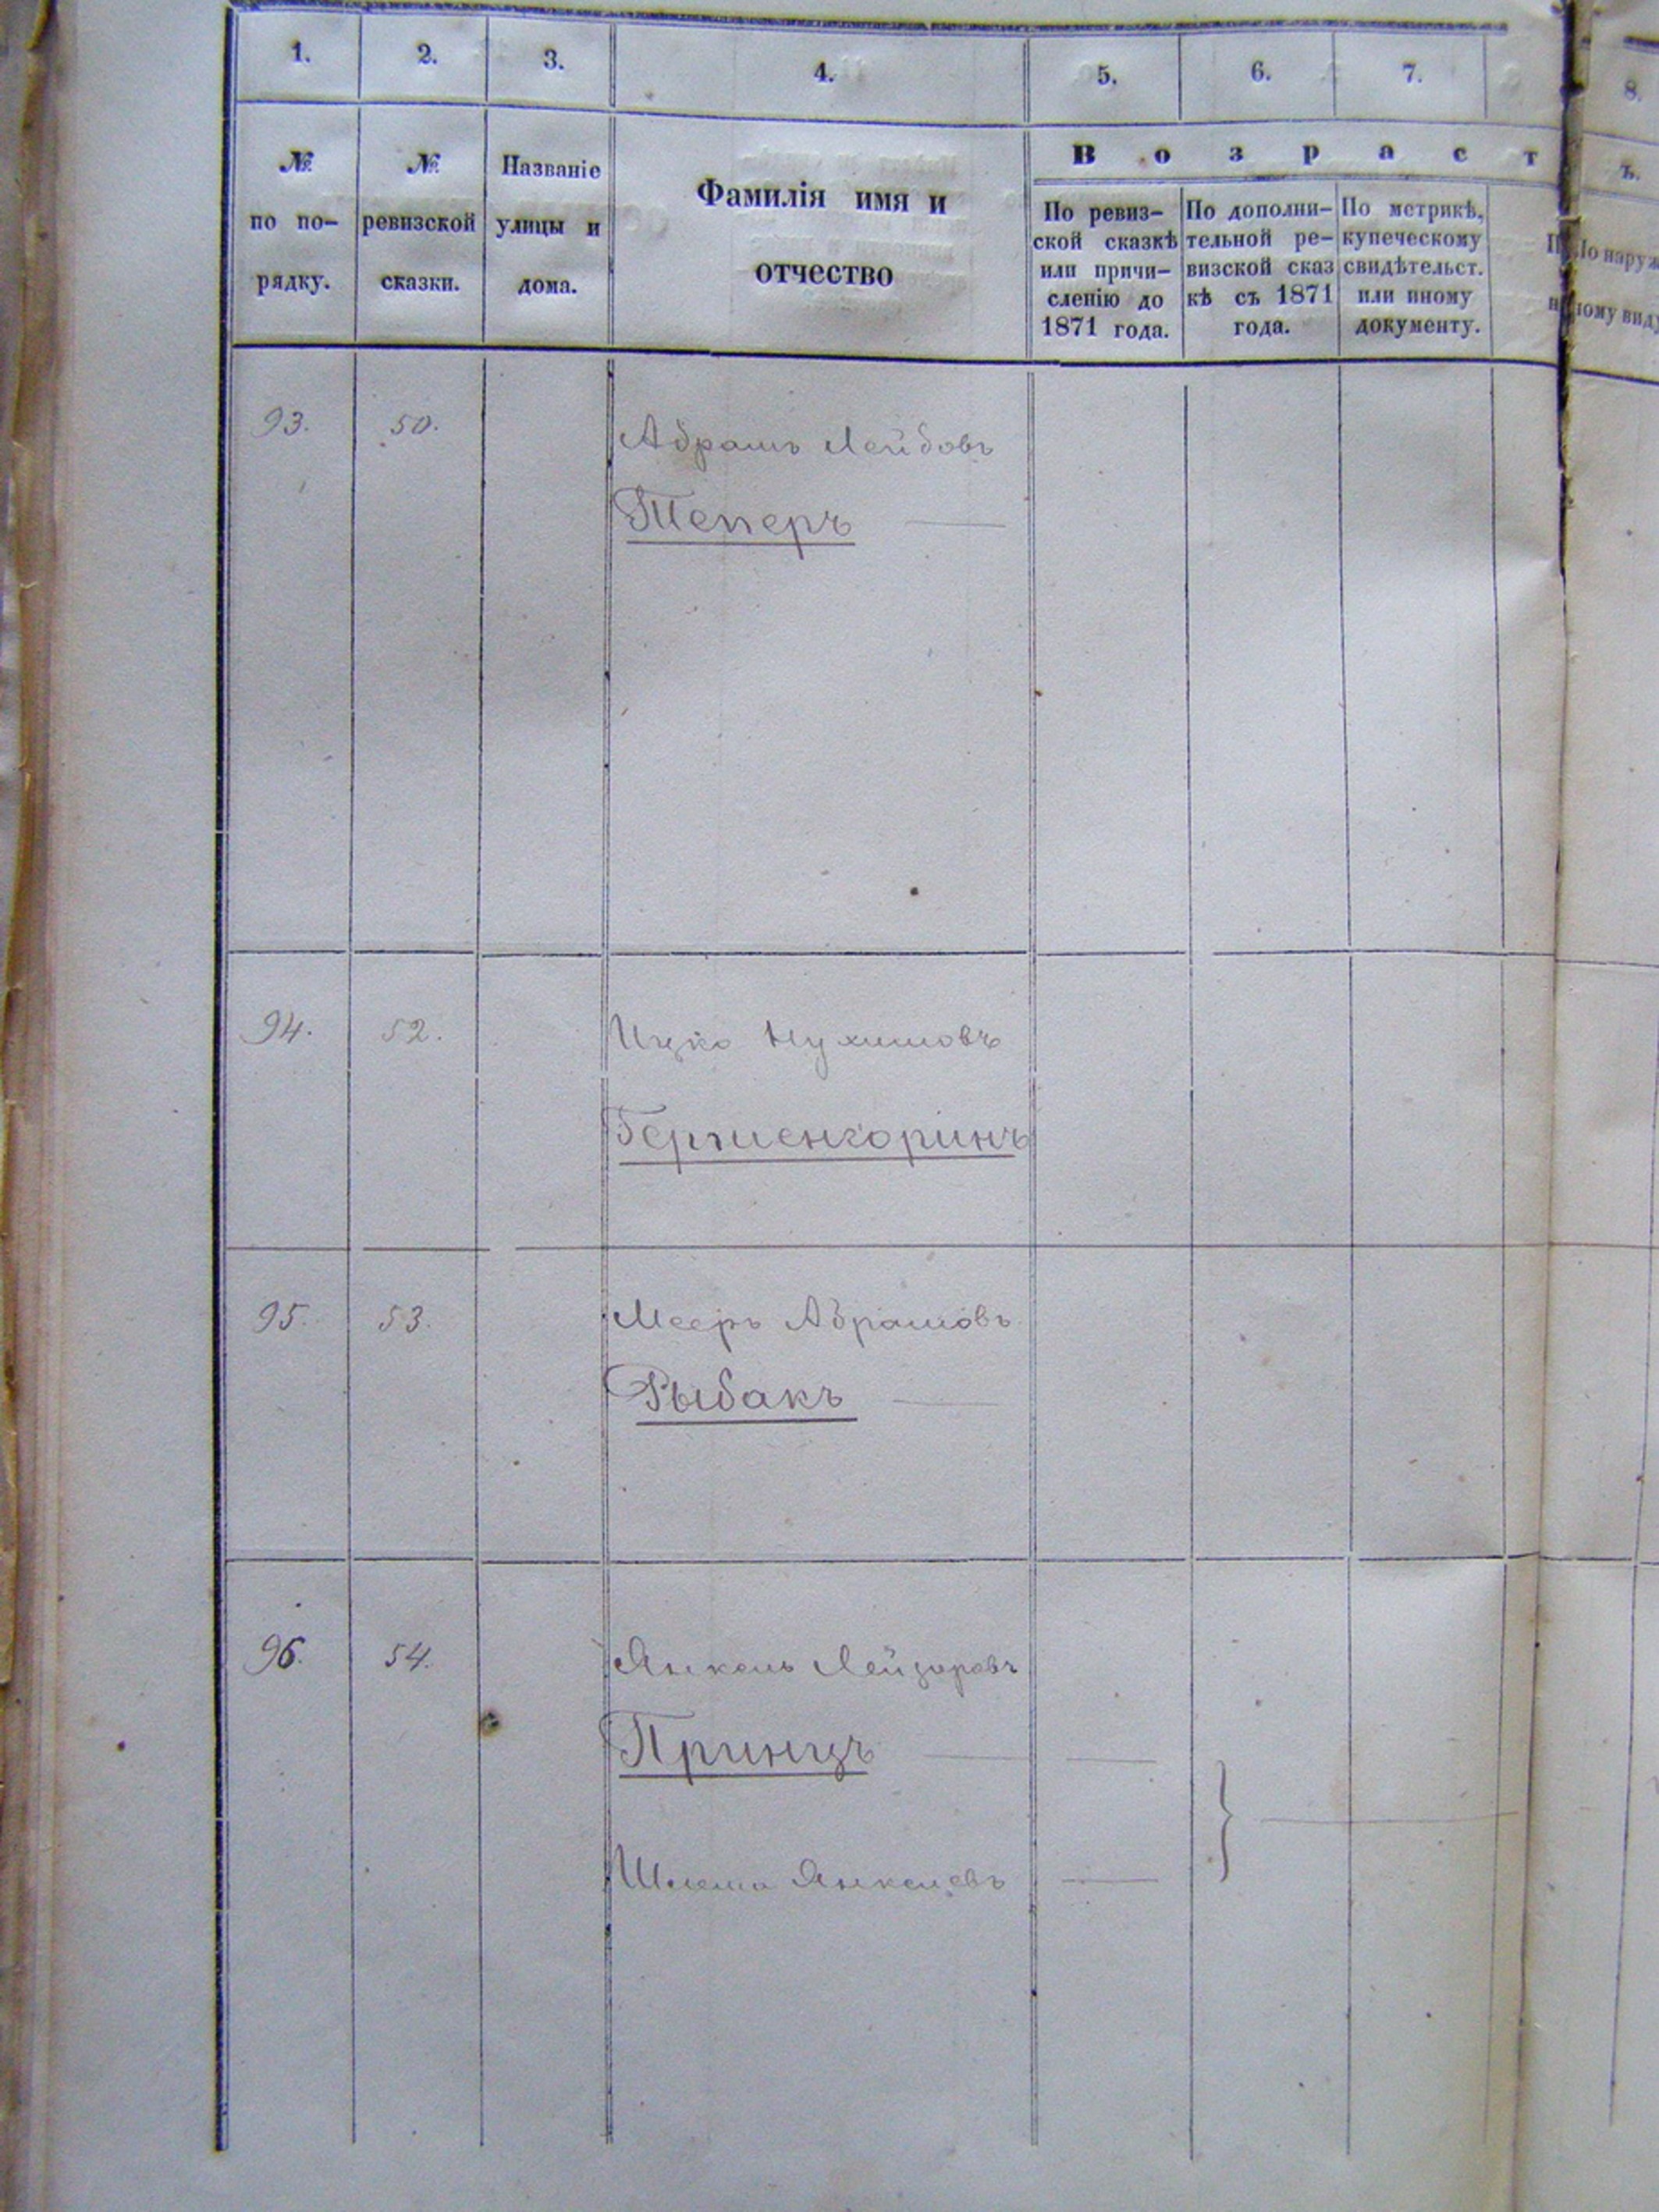 1. 2. 3. 4. 5. 6. 7. 8.
№ по по-рядку.
№ ревизской сказки.
Названіе улицы и дома.
Фамилія имя и
отчество
В о з р а с т ъ.
По ревиз-
ской сказкѣ
или причи-
сленію до
1871 года.
По дополни-
тельной ре-
визской сказ
кѣ съ 1871
года.
По метрикѣ,
купеческому
свидѣтельст.
или иному
документу.
По наруж
ному виду
93. 50. Абрамъ Лейбовъ
Теперъ
94. 52. Ицко Нухимовъ
95. 53. Мееръ Абрамовъ
Рыбакъ
96. 54. Янкель Лейзоровъ
Принцъ
Шлема Янкелевъ